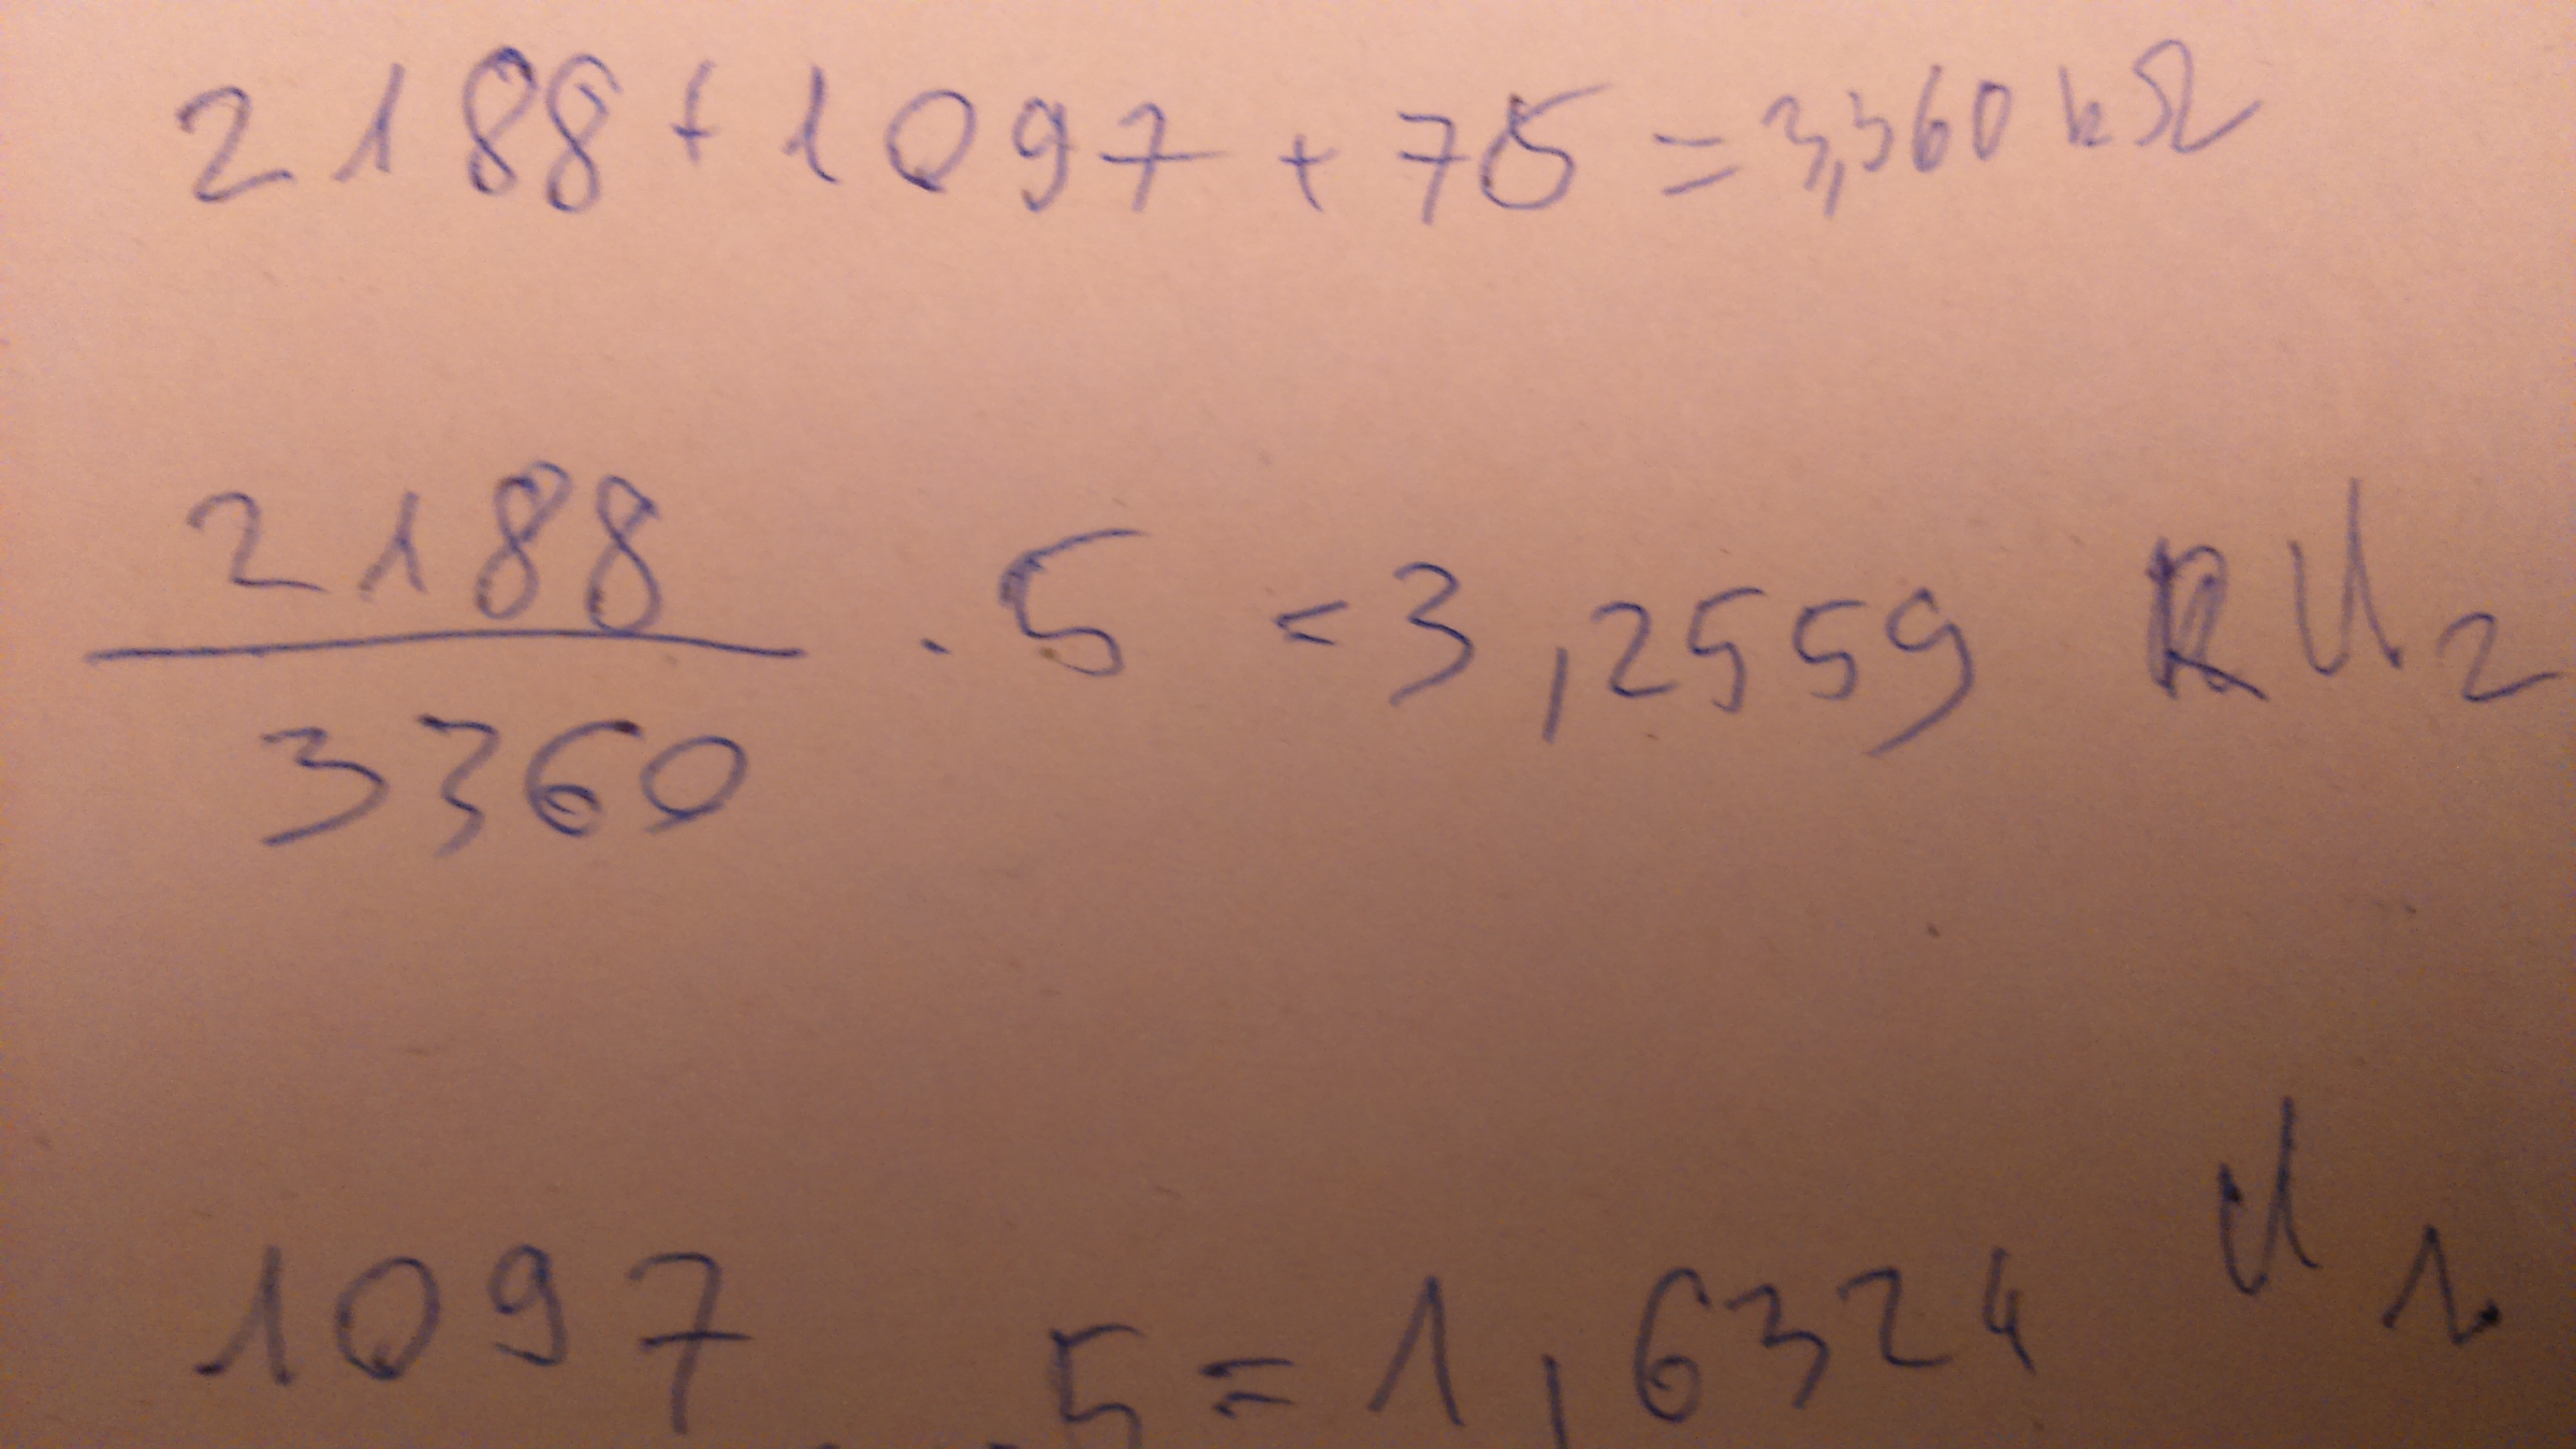 2188 + 1097 + 75 = 3,360 kΩ
2188
3360
· 5 = 3,2559 U2
1097 · 5 = 1,6324 U1